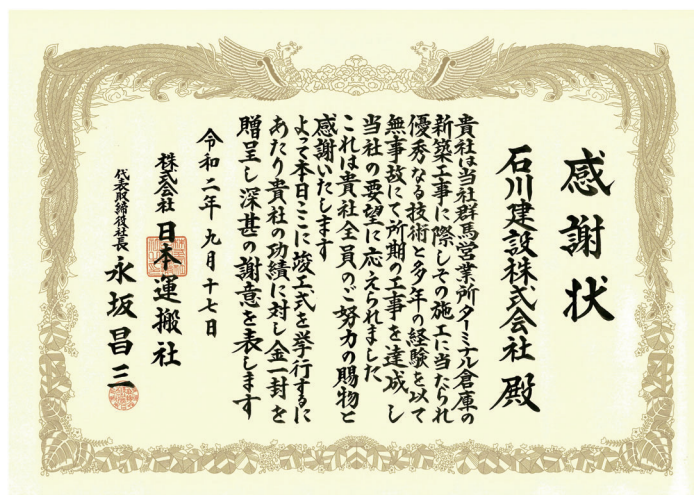 感謝状
石川建設株式会社 殿
貴社は当社群馬営業所ターミナル倉庫の
新築工事に際しその施工に当たられ
優秀なる技術と多年の経験を以て
無事故にて所期の工事を達成し
当社の要望に応えられました
これは貴社全員のご努力の賜物と
感謝いたします
よって本日ここに竣工式を挙行するに
あたり貴社の功績に対し金一封を
贈呈し深甚の謝意を表します
令和二年九月十七日
株式会社 日本運搬社
代表取締役社長 永坂昌三